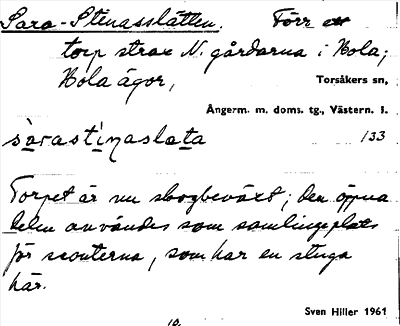 Sara-Stenasslåtten. Förr ett
torp strax N. gårdarna i Hola;
Hola ägor,
Torsåkers sn,
Ångerm. m. doms. tg., Västern. l.
sàrastìnaslata 133
Torpet är nu skogbeväxt; den öppna
delen användes som samlingsplats
för scouterna, som har en stuga
här.
Sven Hiller 1961